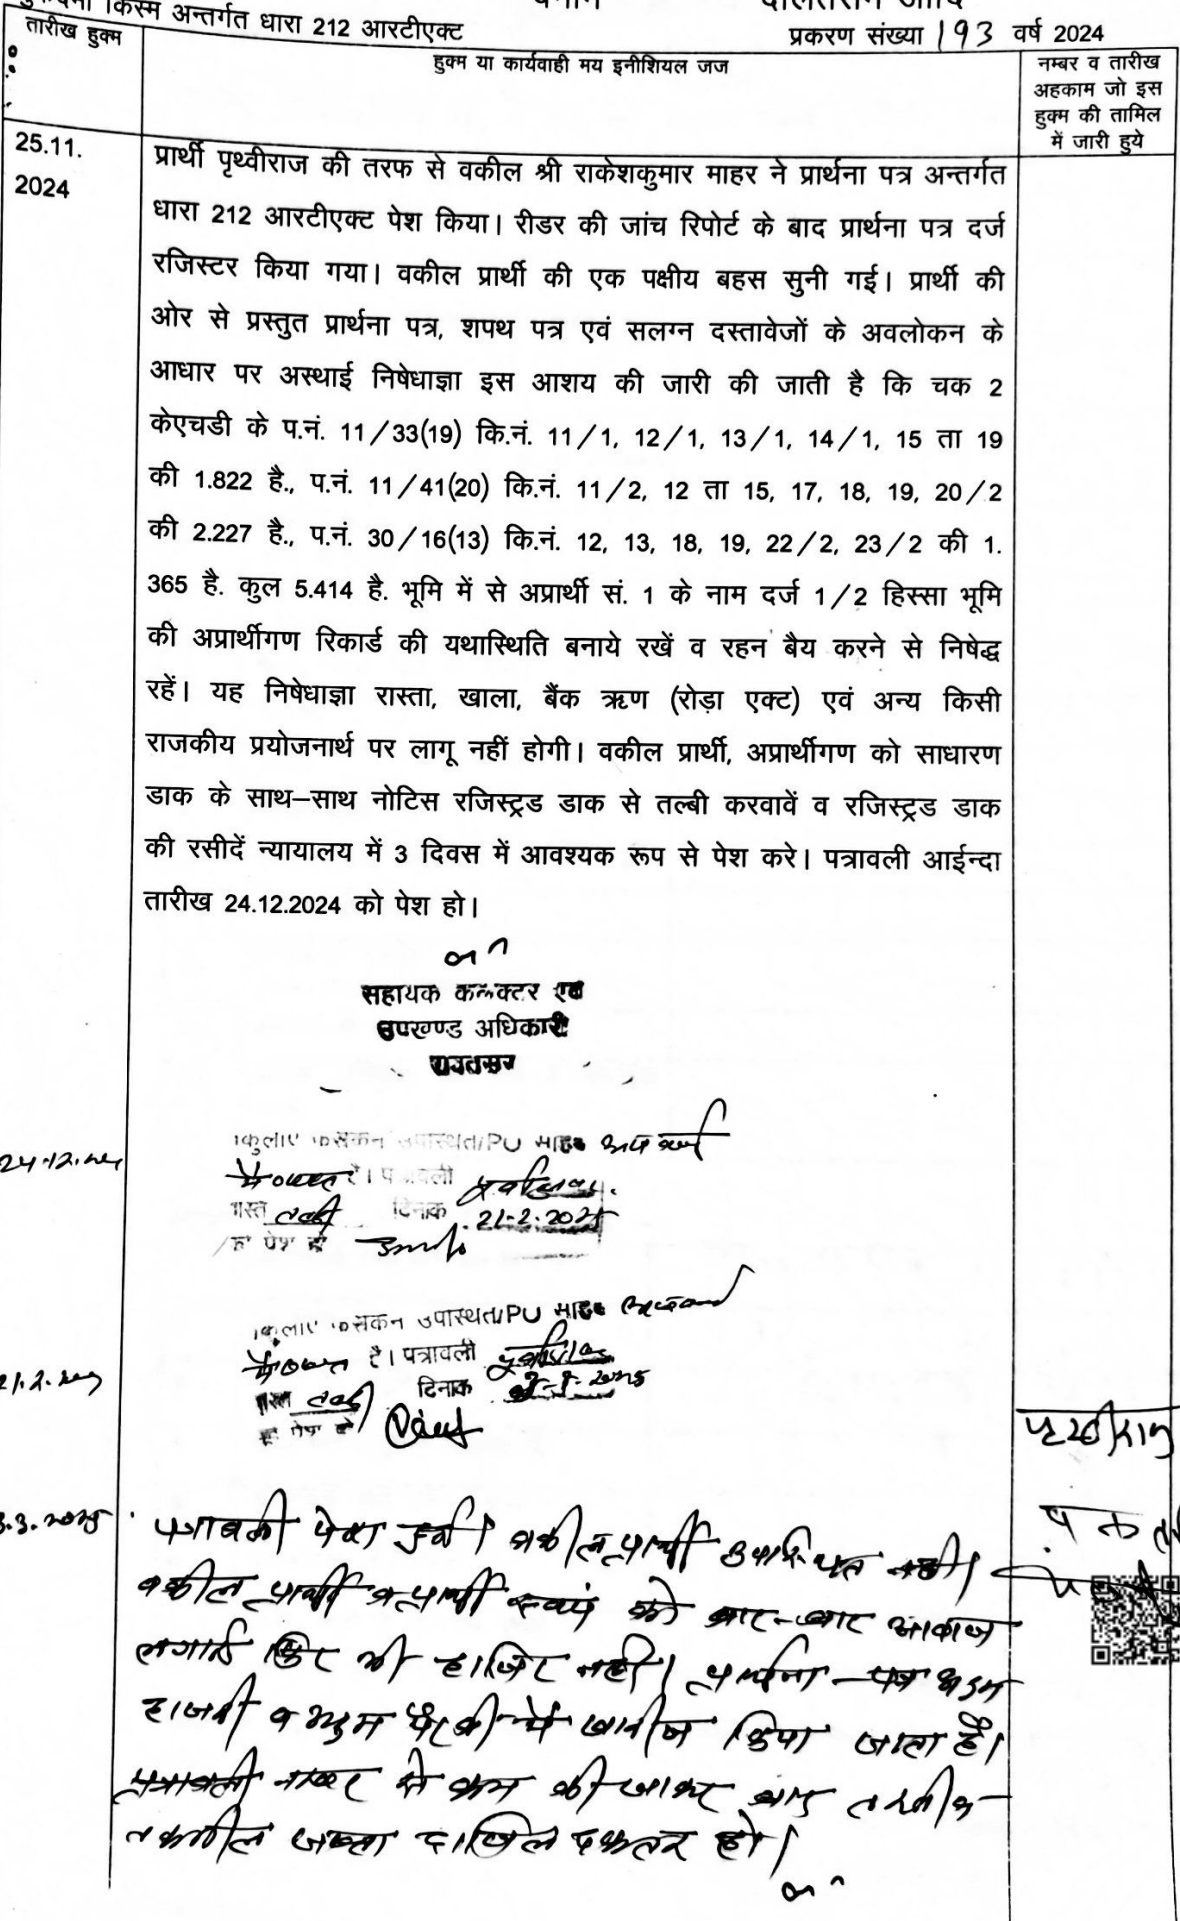 किस्म अन्तर्गत धारा 212 आरटीएक्ट
प्रकरण संख्या 193 वर्ष 2024
तारीख हुक्म
हुक्म या कार्यवाही मय इनीशियल जज
नम्बर व तारीख
अहकाम जो इस
हुक्म की तामिल
में जारी हुये
25.11.
2024
प्रार्थी पृथ्वीराज की तरफ से वकील श्री राकेशकुमार माहर ने प्रार्थना पत्र अन्तर्गत
धारा 212 आरटीएक्ट पेश किया। रीडर की जांच रिपोर्ट के बाद प्रार्थना पत्र दर्ज
रजिस्टर किया गया। वकील प्रार्थी की एक पक्षीय बहस सुनी गई। प्रार्थी की
ओर से प्रस्तुत प्रार्थना पत्र, शपथ पत्र एवं सलग्न दस्तावेजों के अवलोकन के
आधार पर अस्थाई निषेधाज्ञा इस आशय की जारी की जाती है कि चक 2
केएचडी के प.नं. 11/33(19) कि.नं. 11/1, 12/1, 13/1, 14/1, 15 ता 19
की 1.822 है., प.नं. 11/41(20) कि.नं. 11/2, 12 ता 15, 17, 18, 19, 20/2
की 2.227 है., प.नं. 30/16(13) कि.नं. 12, 13, 18, 19, 22/2, 23/2 की 1.
365 है. कुल 5.414 है. भूमि में से अप्रार्थी सं. 1 के नाम दर्ज 1/2 हिस्सा भूमि
की अप्रार्थीगण रिकार्ड की यथास्थिति बनाये रखें व रहन बैय करने से निषेद्ध
रहें। यह निषेधाज्ञा रास्ता, खाला, बैंक ऋण (रोड़ा एक्ट) एवं अन्य किसी
राजकीय प्रयोजनार्थ पर लागू नहीं होगी। वकील प्रार्थी, अप्रार्थीगण को साधारण
डाक के साथ–साथ नोटिस रजिस्ट्रड डाक से तल्बी करवावें व रजिस्ट्रड डाक
की रसीदें न्यायालय में 3 दिवस में आवश्यक रूप से पेश करे। पत्रावली आईन्दा
तारीख 24.12.2024 को पेश हो।
सहायक कलक्टर एवं
उपखण्ड अधिकारी
रावतसर
उपस्थित/PO साहब
है। पत्रावली
दिनांक 21-2-2025
पेश हो
उपस्थित/PO साहब
है। पत्रावली
दिनांक
पेश हो
पृथ्वीराज
पत्रावली पेश हुई। वकील प्रार्थी उपस्थित नहीं।
वकील प्रार्थी व प्रार्थी स्वयं को बार-बार आवाज
लगाई फिर भी हाजिर नहीं। प्रार्थना-पत्र अदम
हाजरी व अदम पैरवी में खारीज किया जाता है।
पत्रावली नम्बर से कम की जाकर बाद
दाखिल दफ्तर हो।